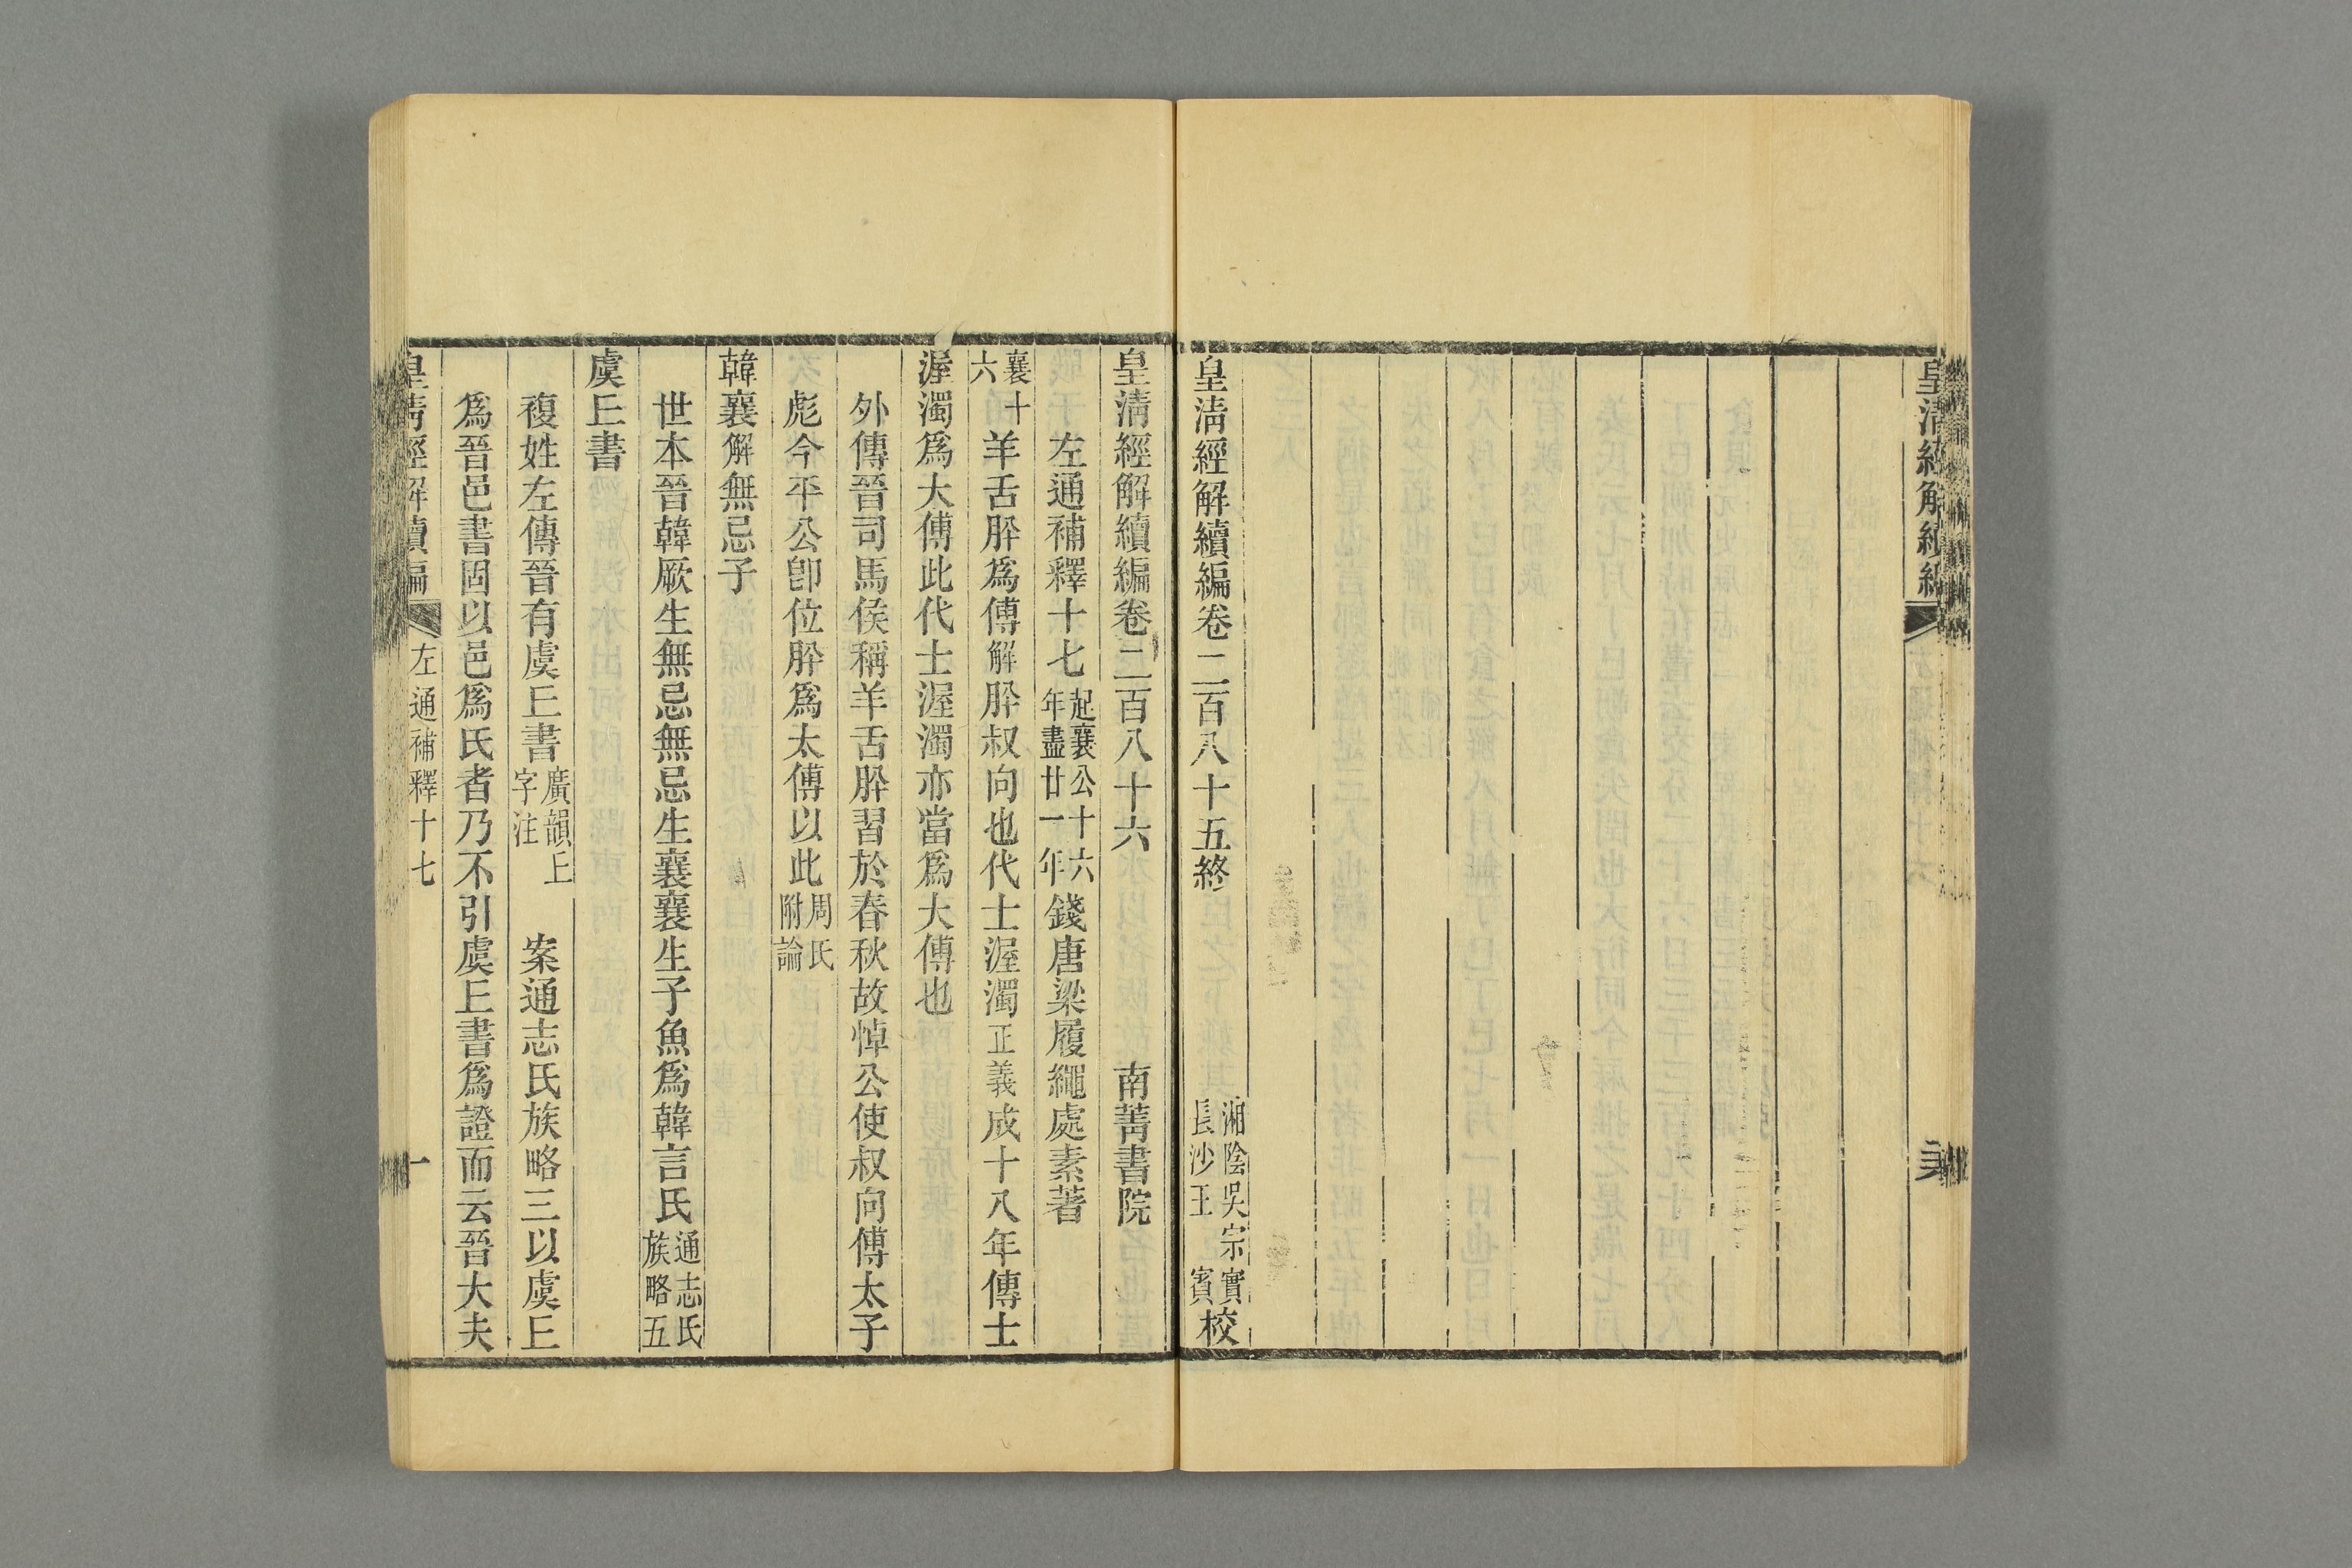 皇清經解續編
皇清經解續編卷二百八十五終
湘陰吳宗實
長沙王 賓
校
皇清經解續編卷二百八十六 南菁書院
左通補釋十七 起襄公十六年盡廿一年 錢唐梁履繩處素著
襄十六 羊舌肸爲傅解肸叔向也代士渥濁正義成十八年傳士
渥濁爲大傅此代士渥濁亦當爲大傅也
外傳晉司馬侯稱羊舌肸習於春秋故悼公使叔向傅太子
彪今平公卽位肸爲太傅以此周氏附論
韓襄解無忌子
世本晉韓厥生無忌無忌生襄襄生子魚爲韓言氏通志氏族略五
虞丠書
複姓左傳晉有虞丠書廣韻丠字注 案通志氏族略三以虞丠
爲晉邑書固以邑爲氏者乃不引虞丠書爲證而云晉大夫
皇清經解續編 左通補釋十七 一